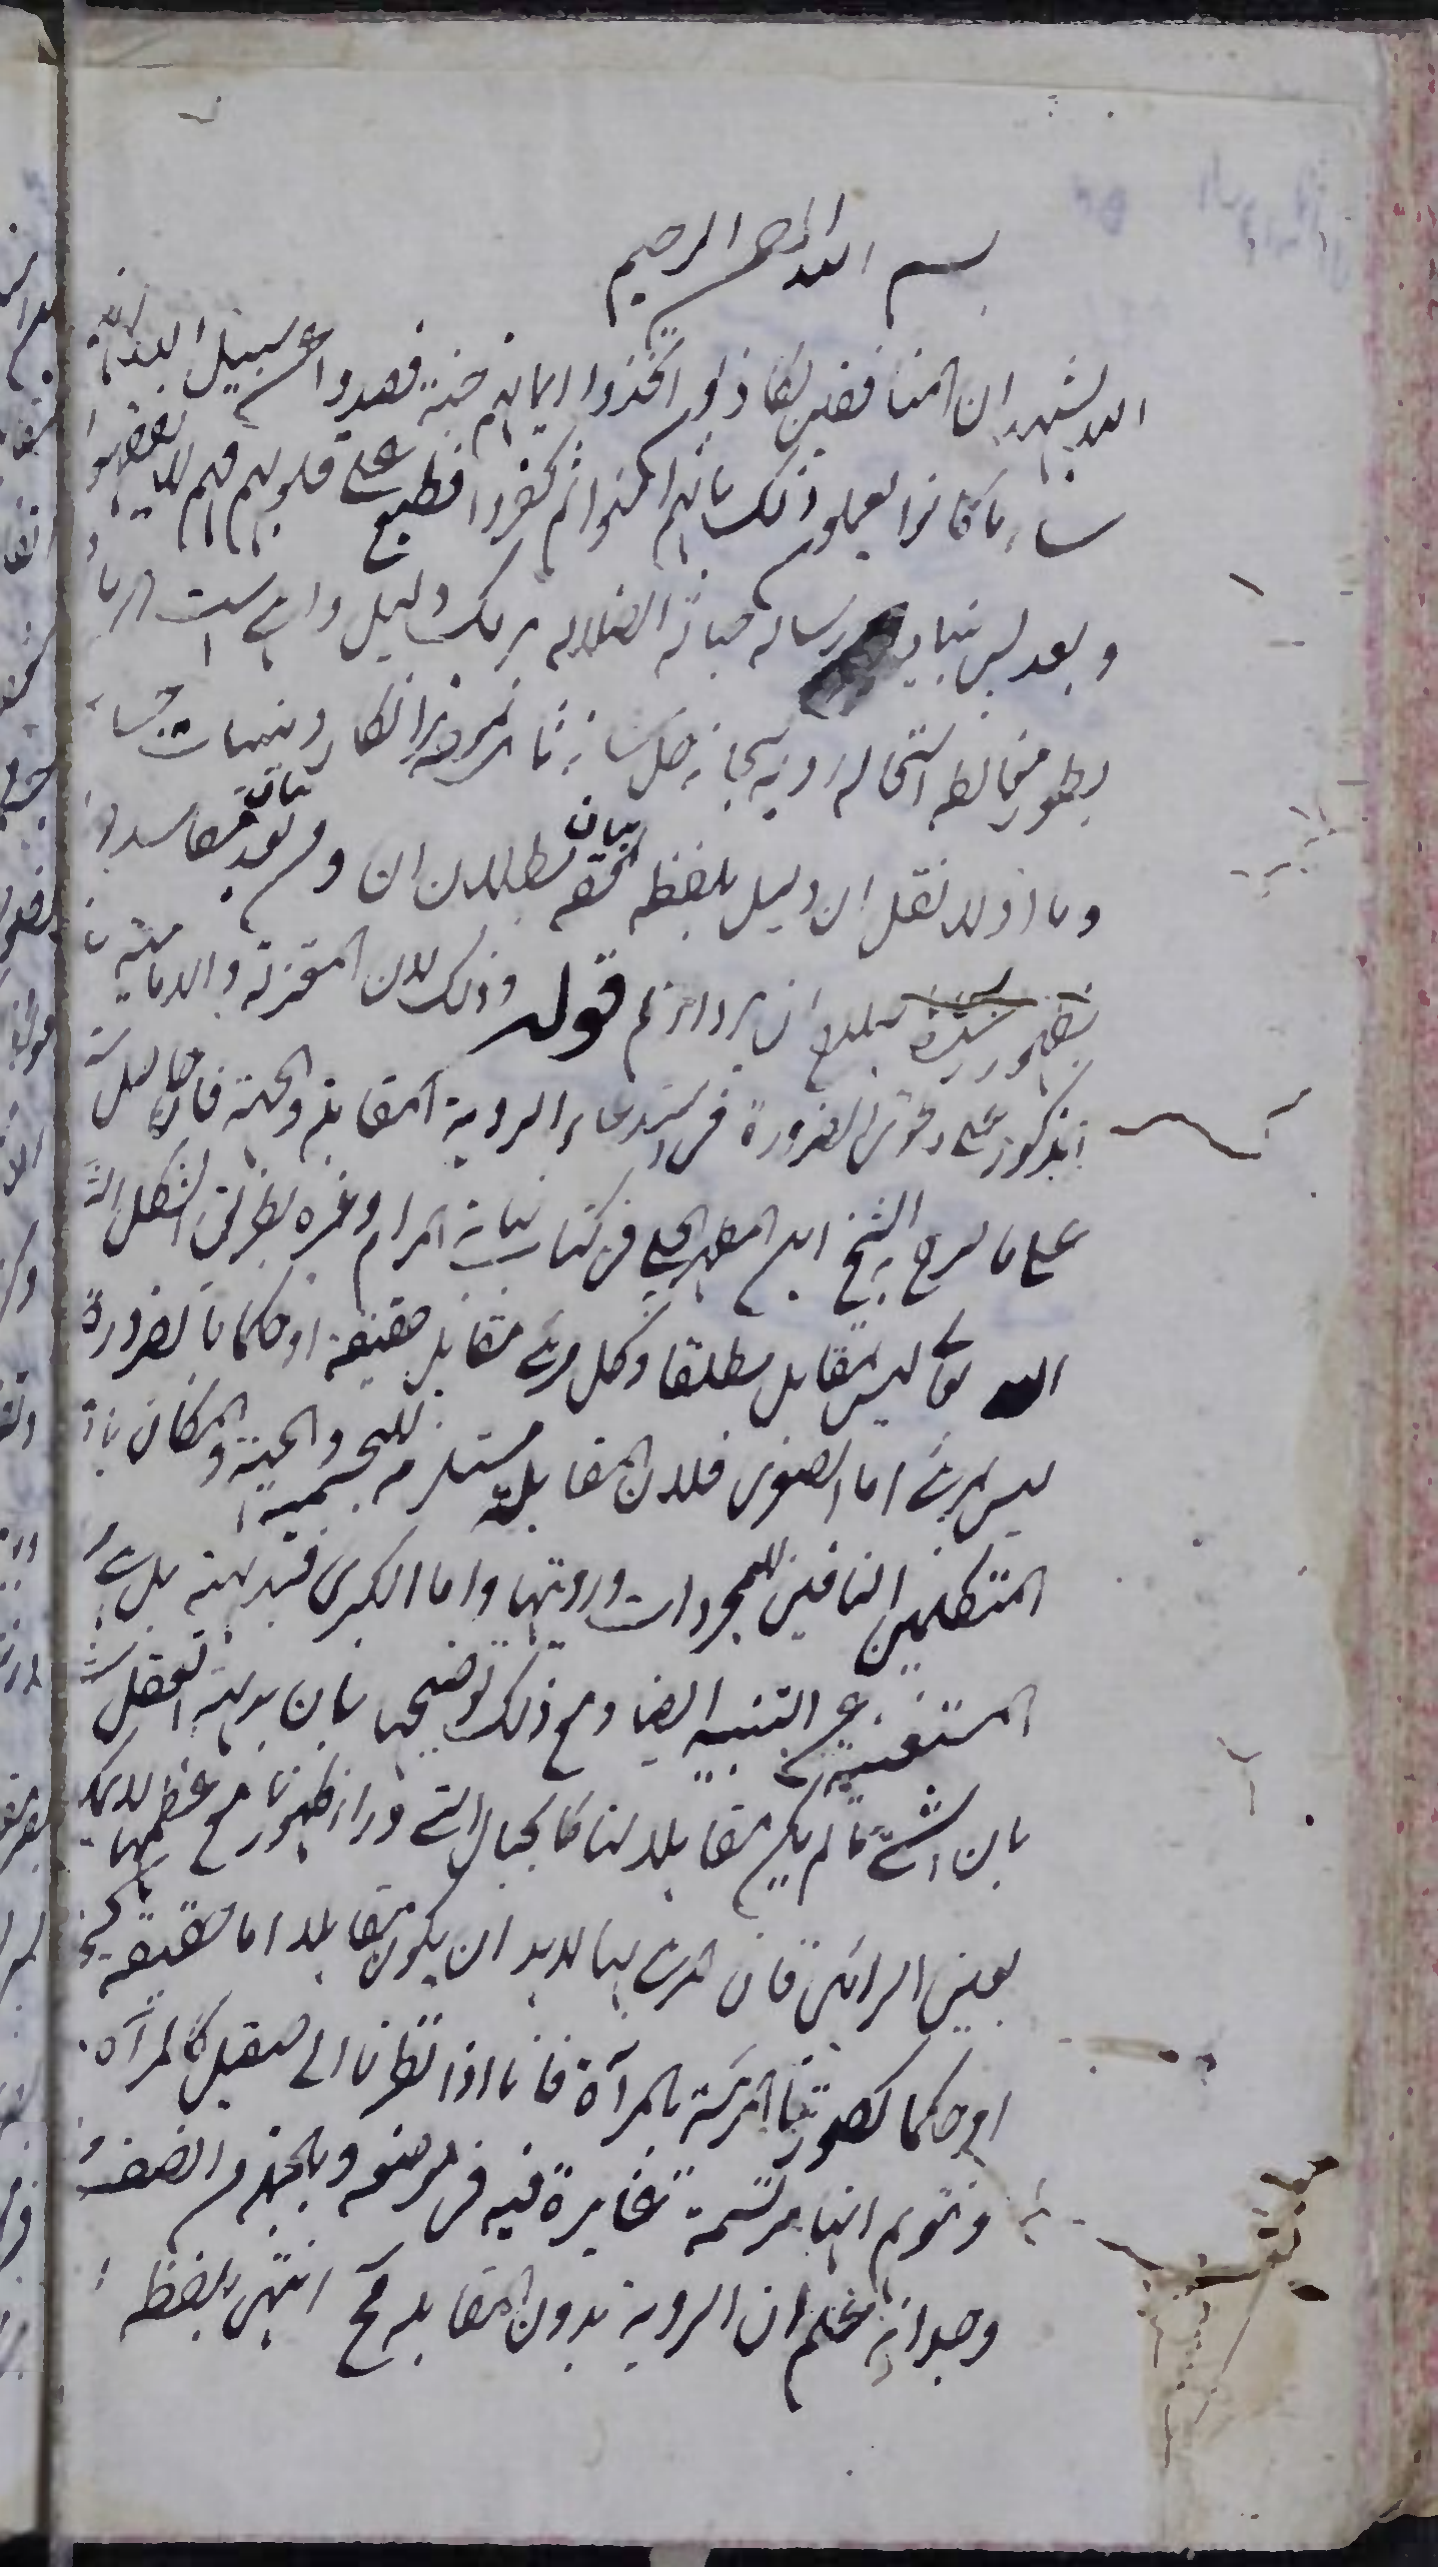 بسم الله الرحمن الرحیم
الله یشهد ان المنافقین لکاذبون اتخذوا ایمانهم جنة فصدوا عن سبیل الله انهم
ساء ما کانوا یعملون ذلک بانهم امنوا ثم کفروا فطبع علی قلوبهم فهم لا یفقهون
و بعد پس بنای رساله حبالة الضلاله بر یک دلیل واهی است
بطور مغالطه استحاله رویه سبحانه جل شانه ثابت نموده
و ما اولا نقل ان دلیل بلفظه نموده بیان بطلان ان و بعد بیان مفاسد
بظهور مبلغ ان پردازیم قوله و ذلک لان المعتزلة و الامامیة
علی دعوی الضرورة فی استدعاء الرویة المقابلة و الجهة فان
علی ما صرح به الشیخ ابن المطهر الحلی فی کتاب نهایة المرام و غیره بطریق الشکل
الله تعالی لیس بمقابل مطلقا و کل مرئی مقابل حقیقة او حکما بالضرورة
لیس بمرئی اما الصغری فلان المقابلة مستلزمة للجسمیة و الجهة و المکان
المتکلمین النافین للمجردات و رویتها و اما الکبری فبدیهیة بل
المستغنیة عن التنبیه ایضا و مع ذلک توضیحها بان بدیهة العقل
بان الشئ ما لم یکن مقابلا لنا کالجبال التی وراء ظهورنا مع عظمها لا یمکن
بعین الرائی فان المرئی بها لا بد ان یکون مقابلا اما حقیقة
او حکما کصورتنا المرئیة بالمرآة فانا اذا نظرنا الی صقیل کالمرآة
و نتوهم انها مرتسمة فیه فی موضعه و بالجملة
وجدانه یعلم ان الرویة بدون المقابلة مح انتهی بلفظه